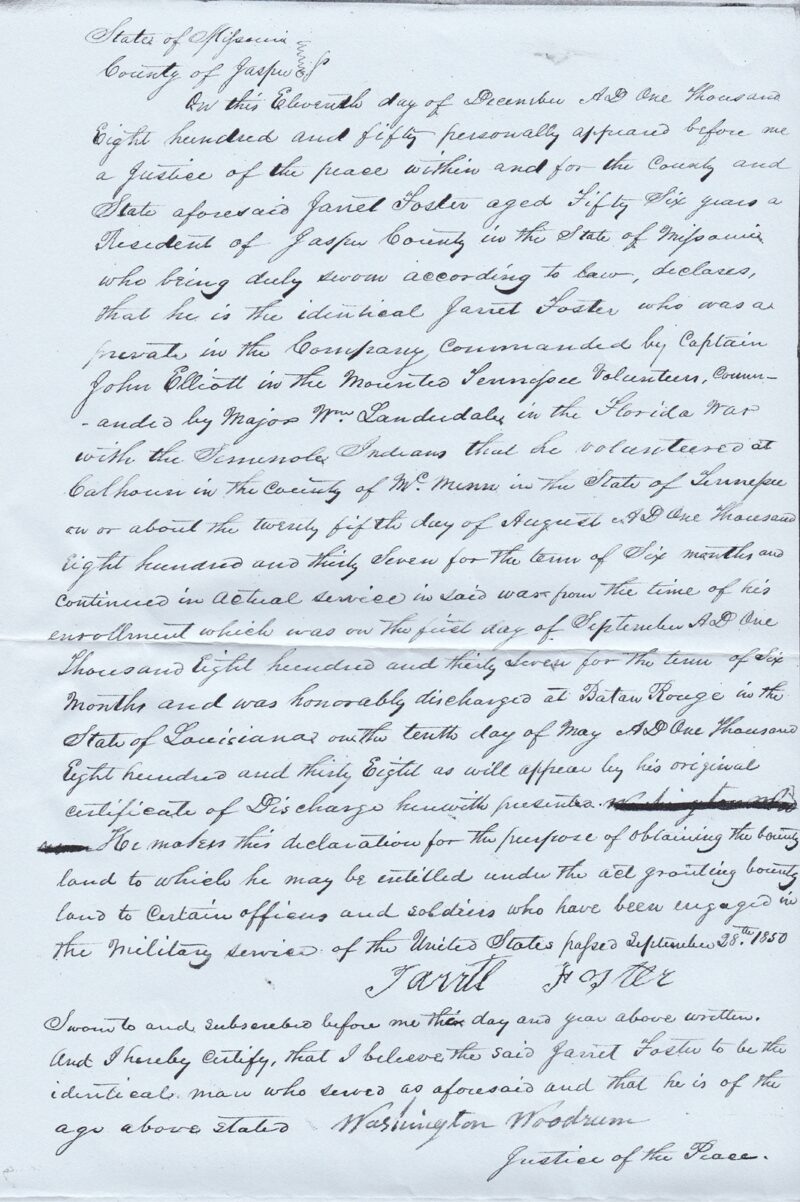 State of Missouri
County of Jasper SS
On this Eleventh day of December AD One Thousand
Eight hundred and fifty personally appeared before me
a Justice of the peace within and for the County and
State aforesaid Jarret Foster aged Fifty Six years a
Resident of Jasper County in the State of Missouri
who being duly sworn according to law, declares,
that he is the identical Jarret Foster who was a
private in the Company commanded by Captain
John Elliott in the Mounted Tennessee Volunteers, Comm-
-anded by Major Wm. Lauderdale in the Florida War
with the Seminole Indians that he volunteered at
Calhoun in the County of Mc. Minn in the State of Tennessee
on or about the twenty fifth day of August AD One Thousand
Eight hundred and thirty Seven for the term of Six months and
Continued in Actual service in said war from the time of his
enrollment which was on the first day of September AD One
Thousand Eight hundred and thirty Seven for the term of Six
Months and was honorably discharged at Batan Rouge in the
State of Louisiana on the tenth day of May AD One Thousand
Eight hundred and thirty Eight as will appear by his original
certificate of Discharge herewith presented.
He makes this declaration for the purpose of obtaining the bounty
land to which he may be entitled under the act granting bounty
land to Certain officers and soldiers who have been engaged in
the Military service of the United States passed September 28th. 1850
Jarrit Foster
Sworn to and subscribed before me the day and year above written.
And I hereby Certify, that I believe the said Jarret Foster to be the
identical man who served as aforesaid and that he is of the
age above stated Washington Woodrum
Justice of the Peace.